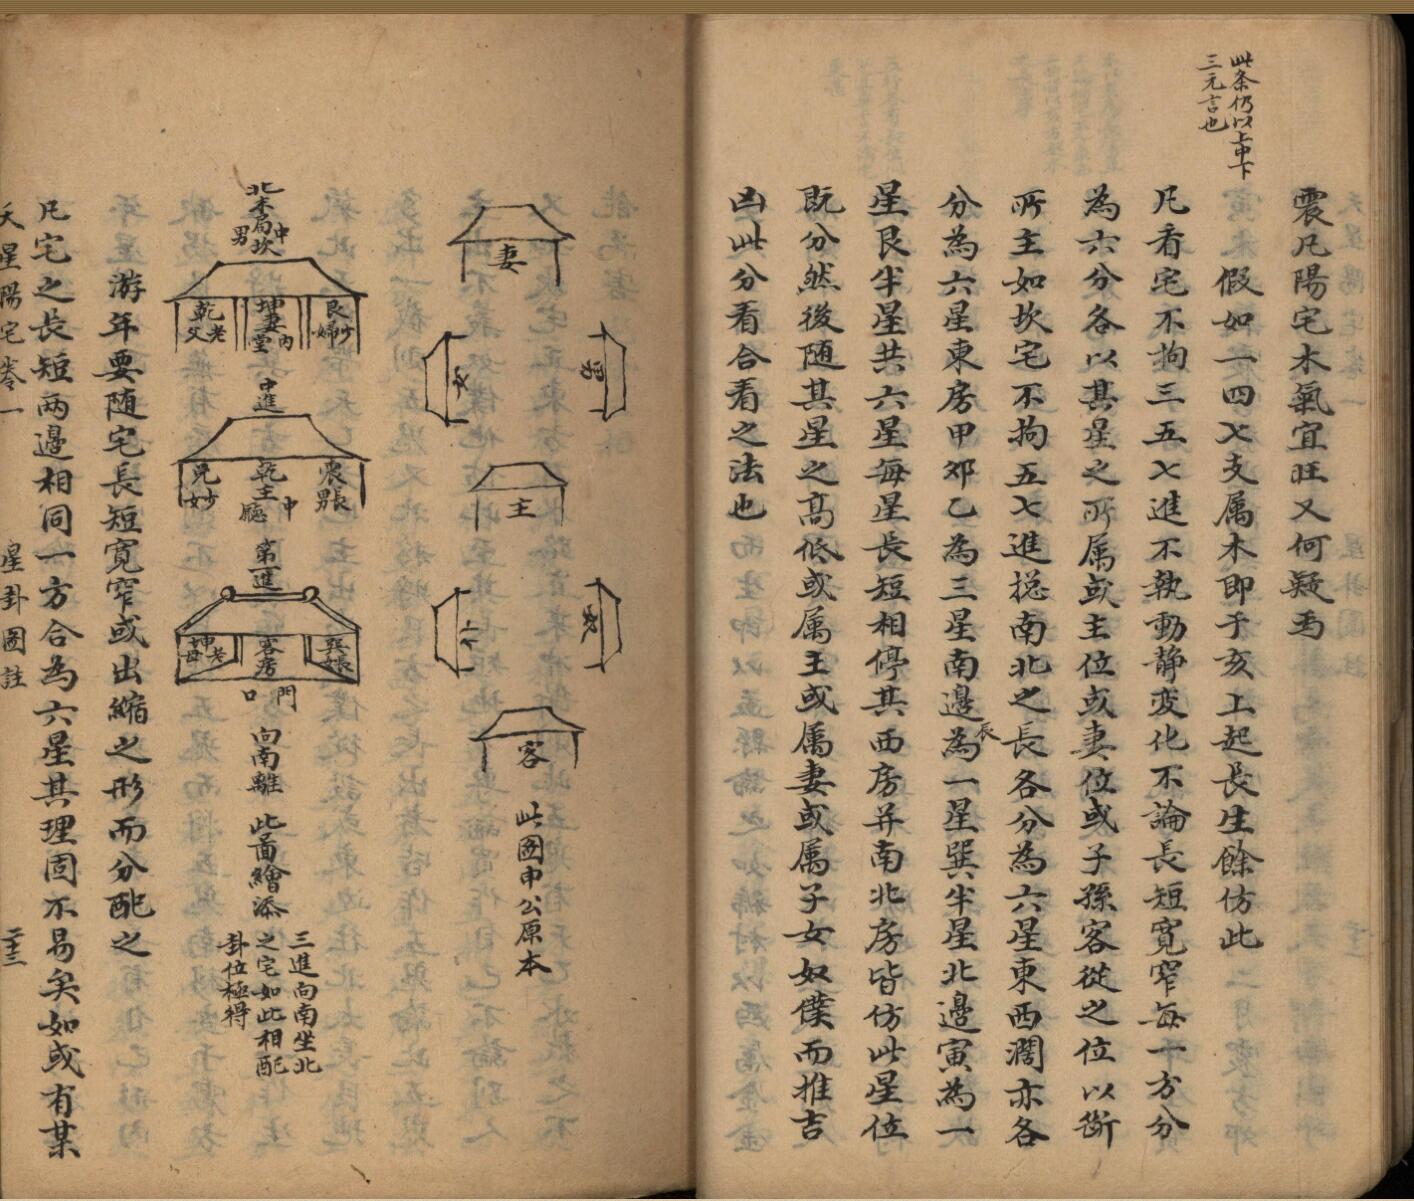 此条仍以上中下
三元言也
震凡陽宅木氣宜旺又何疑焉
假如一四七支属木即于亥上起長生餘仿此
凡看宅不拘三五七進不執動静変化不論長短寬窄每一方分
為六分各以其星之所属或主位或妻位或子孫客從之位以斷
所主如坎宅不拘五七進捴南北之長各分為六星東西濶亦各
分為六星東房甲卯乙為三星南邊辰為一星巽半星北邊寅為一
星艮半星共六星每星長短相停其西房并南北房皆仿此星位
既分然後随其星之髙低或属主或属妻或属子女奴僕而推吉
凶此分看合看之法也
妻
女
主
客
此圖申公原本
北末局坎
中男
艮少婦
坤妻内堂
乾老父
中進
震長男
乾主中廳
兑少女
第一進
巽長
客房
坤老母
門口
向南離
此啚繪添
三進向南坐北
之宅如此相配
卦位極得
游年要随宅長短寬窄或出縮之形而分配之
凡宅之長短两邊相同一方合為六星其理固不易矣如或有某
天星陽宅卷一
星卦圖註
二十三